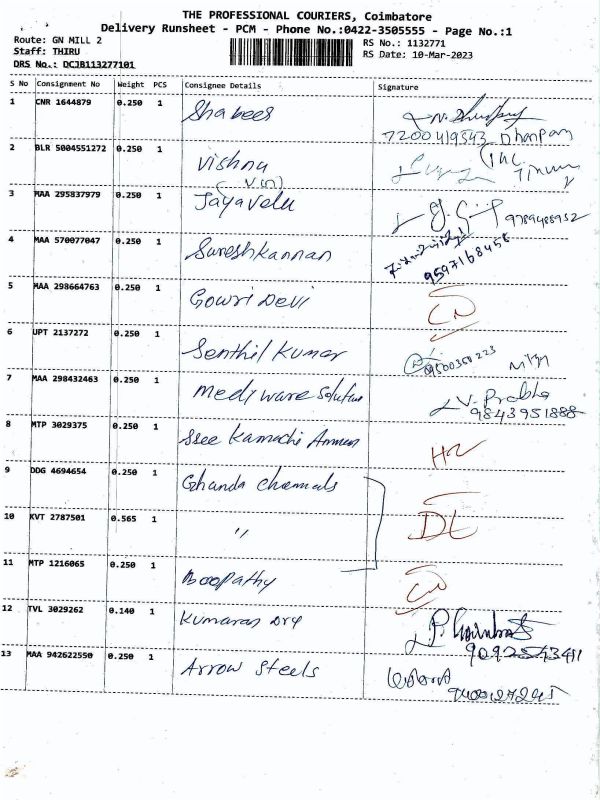 THE PROFESSIONAL COURIERS, Coimbatore
Delivery Runsheet - PCM - Phone No.:0422-3505555 - Page No.:1
Route: GN MILL 2 RS No.: 1132771
Staff: THIRU RS Date: 10-Mar-2023
DRS No.: DCJB113277101
S No Consignment No Weight PCS Consignee Details Signature
1 CNR 1644879 0.250 1 Shabees
7200419343 Dhanpan
2 BLR 5004551272 0.250 1 Vishnu
3 MAA 295837979 0.250 1 Jayavelu 9789488932
4 MAA 570077047 0.250 1 Sureshkannan
9597168458
5 MAA 298664763 0.250 1 Gowri Devi
6 UPT 2137272 0.250 1 Senthil Kumar
7 MAA 298432463 0.250 1 Mediware Solution V. Prabha
9843951888
8 MTP 3029375 0.250 1 Sree Kamachi Amman
9 DDG 4694654 0.250 1 Ghanda chemals
10 KVT 2787501 0.565 1 〃 DL
11 MTP 1216065 0.250 1 Boopathy
12 TVL 3029262 0.140 1 Kumaran Dry
13 MAA 942622550 0.250 1 Arrow Steels